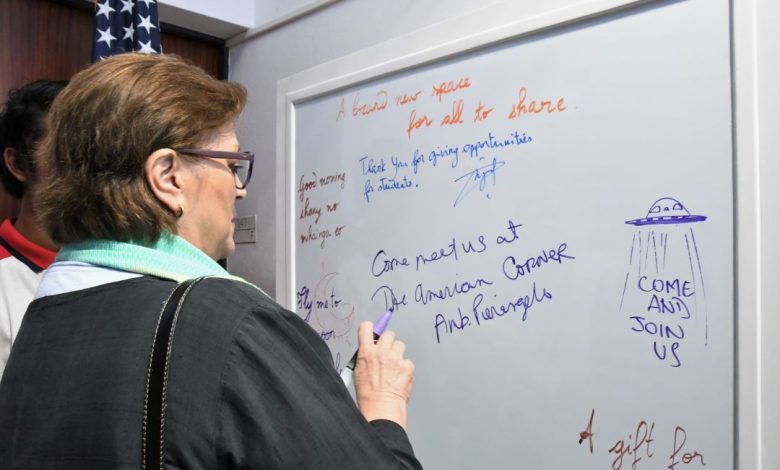 A brand new space
for all to share.
Thank you for giving opportunities
for students.
Good moving
shany no
mihainga eo
Come meet us at
The American CORNER
Amb. Pierangelo
Fly me to
COME
AND
JOIN
US
A gift for